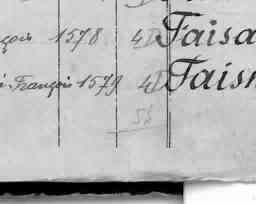 çois 1578 4D Faisa
François 1579 4D Taisn